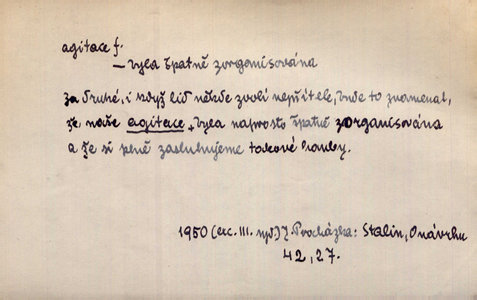 agitace f.
— byla špatně zorganisována
za druhé, i když lid někde zvolí nepřítele, bude to znamenat,
že naše agitace byla naprosto špatně zorganisována
a že si plně zasluhujeme takové hanby.
1950 (exc. III. np.) J. Procházka: Stalin, O návrhu
42, 27.